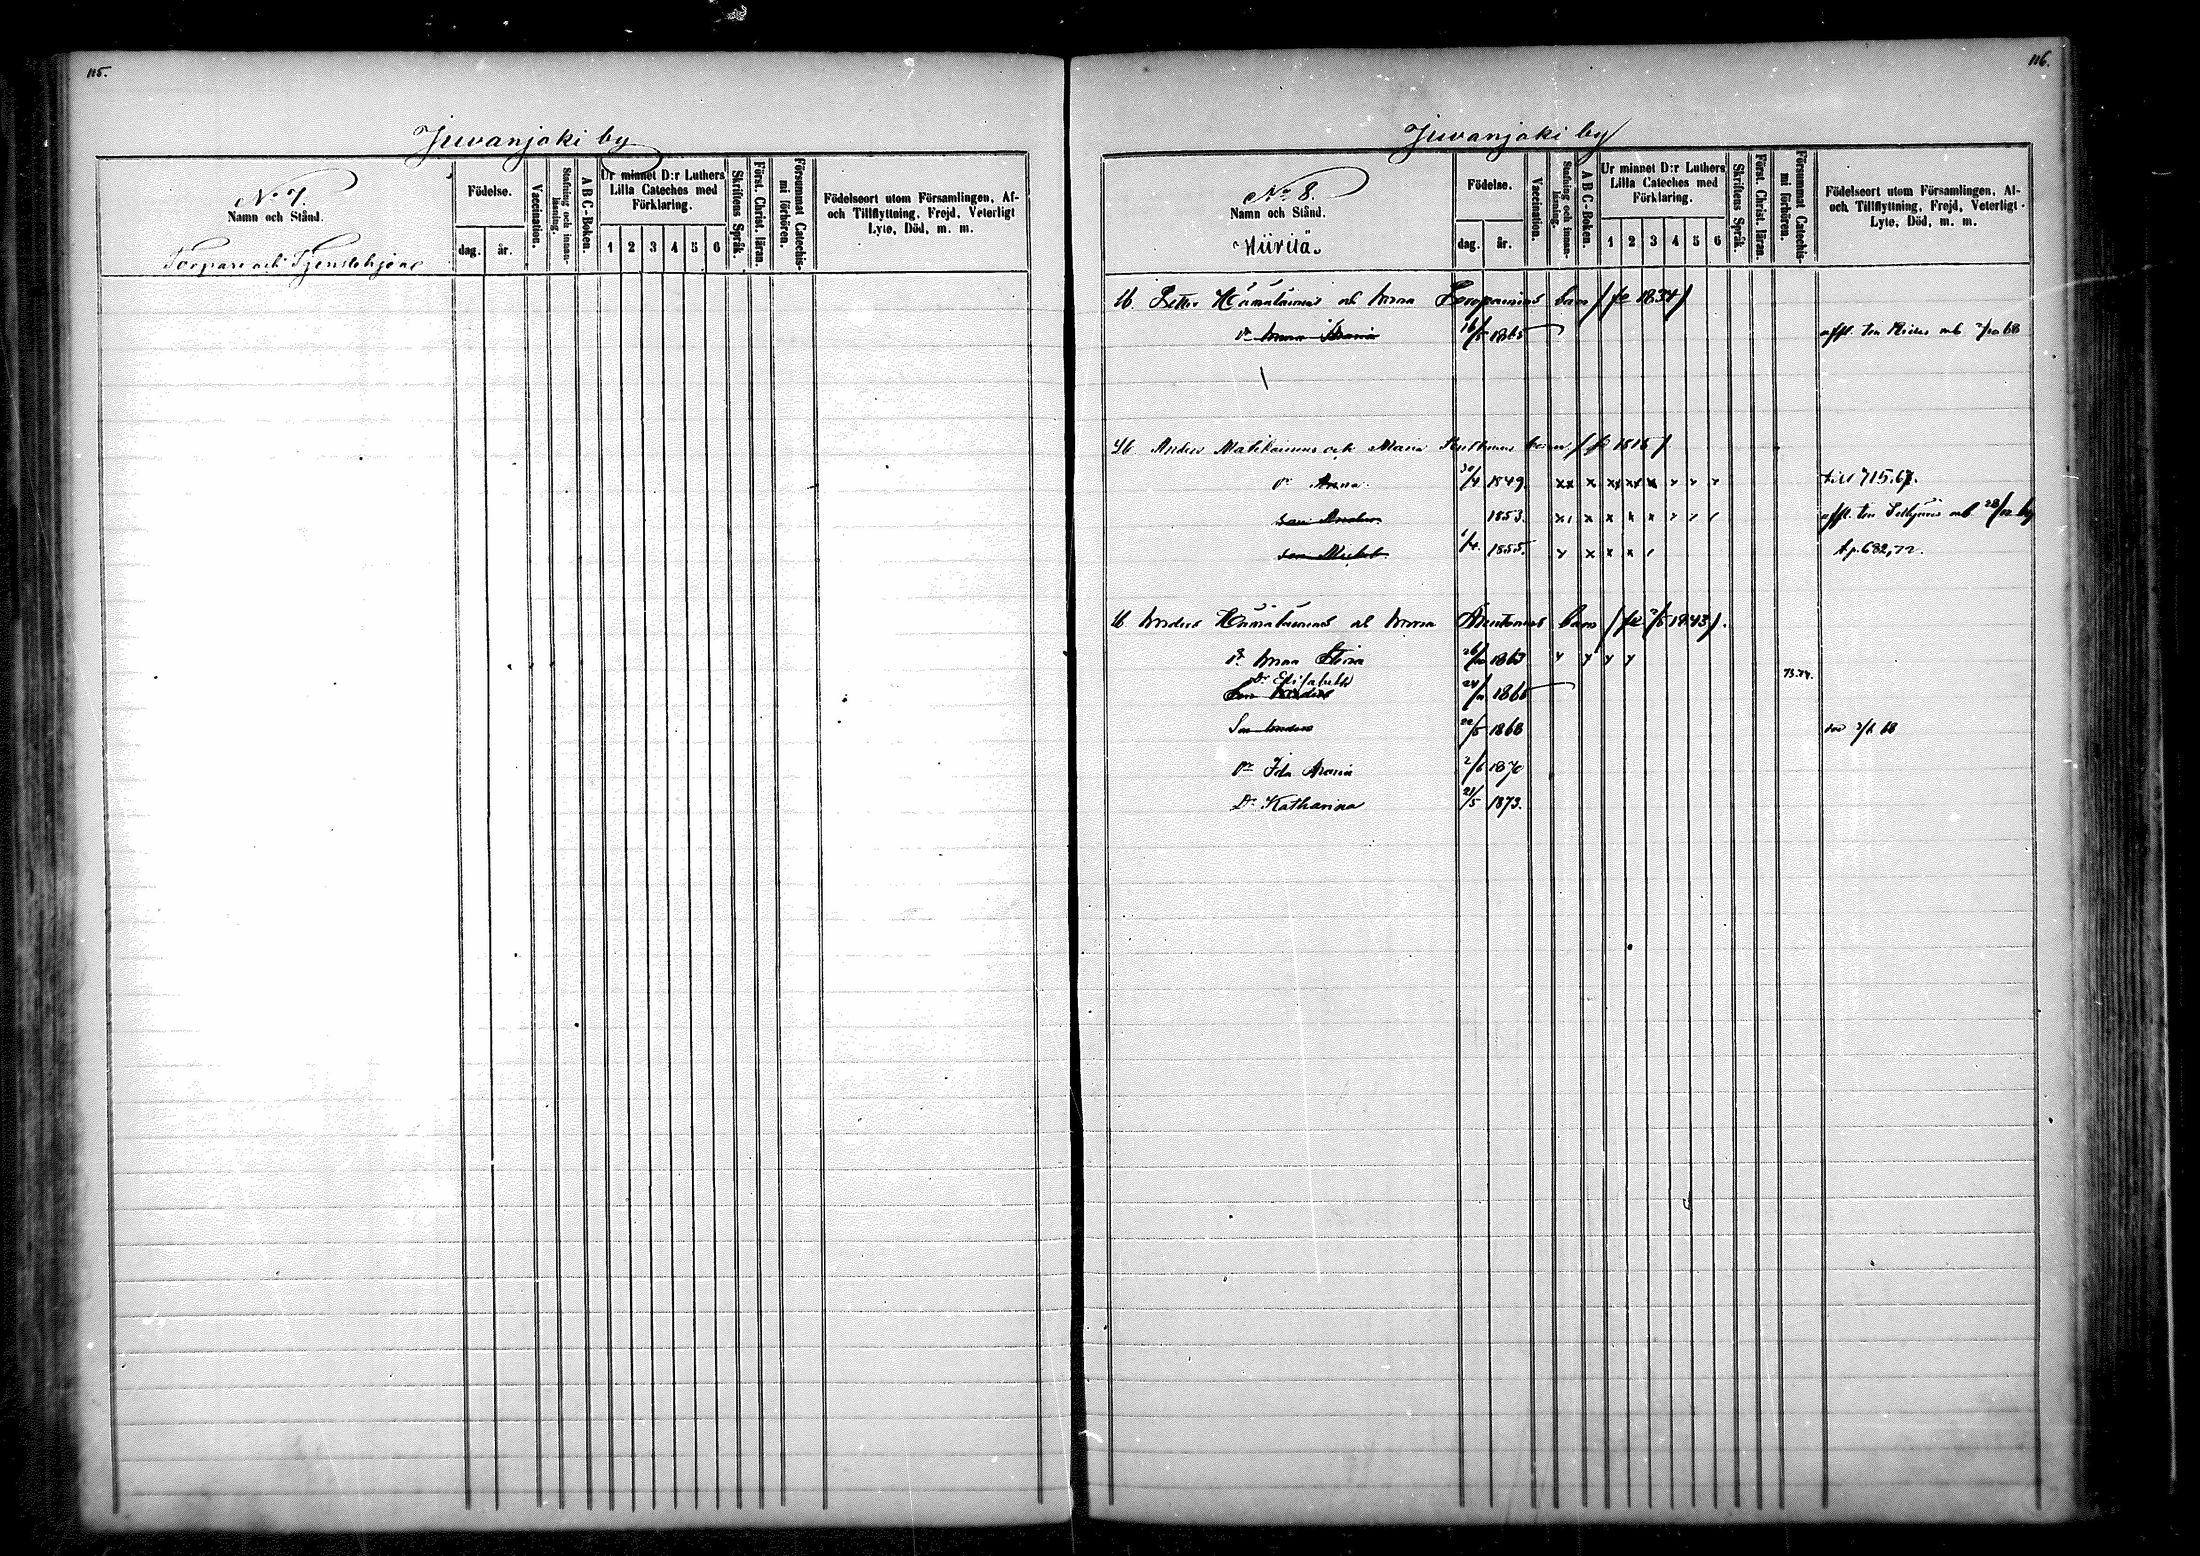 115.
Juvanjoki by
No 7.
Namn och Stånd.
Torpare och Tjenstehjon
Födelse.
dag. år.
Vaccination.
Stafning och innan-läsning.
A B C-Boken.
Ur minnet D:r Luthers
Lilla Cateches med
Förklaring.
1 2 3 4 5 6
Skriftens Språk.
Först. Christ. läran.
Försummat Catechis-mi förhören.
Födelseort utom Församlingen, Af-
och Tillflyttning, Frejd, Veterligt
Lyte, Död, m. m.
116.
Juvanjoki by
No 8.
Namn och Stånd.
Miiritä
Födelse.
dag. år.
Vaccination.
Stafning och innan-läsning.
A B C-Boken.
Ur minnet D:r Luthers
Lilla Cateches med
Förklaring.
1 2 3 4 5 6
Skriftens Språk.
Först. Christ. läran.
Försummat Catechis-mi förhören.
Födelseort utom Församlingen, Af-
och Tillflyttning, Frejd, Veterligt
Lyte, Död, m. m.
Petter Hämäläinens och Anna barn (fe 1834)
Dr Anna Maria 16/5 1865
Anders och Maria barn (fe 1818)
Dr Anna 30/4 1849 xx x xx xx x x x x till 715.67.
son Anders 1853. x x x x x
son Michel 1/4 1855. x x x x t.p. 682,72.
Anders Hämäläinens och Anna barn (fe 1843).
Dr Anna Stina 26/10 1863 x x x x
Dr Elisabeth
Son Anders 24/11 1865 73.74.
Son Anders 22/5 1868 död 2/6 68
Dr Ida Maria 2/6 1870
Dr Katharina 21/5 1873.